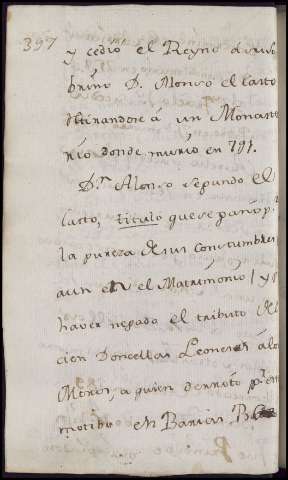 397
y cedió el Reyno a su so
brino D. Alonso el Casto
retirandose a un Monaste
rio donde murió en 791.
D.n Alonso segundo el
Casto, titulo que se ganó p.r
la pureza de sus constumbres
aun en el Matrimonio, y p.r
haver negado el tributo de las
cien Doncellas Leonesas á los
Moros, a quien derrotó p.r este
motibo en Barias